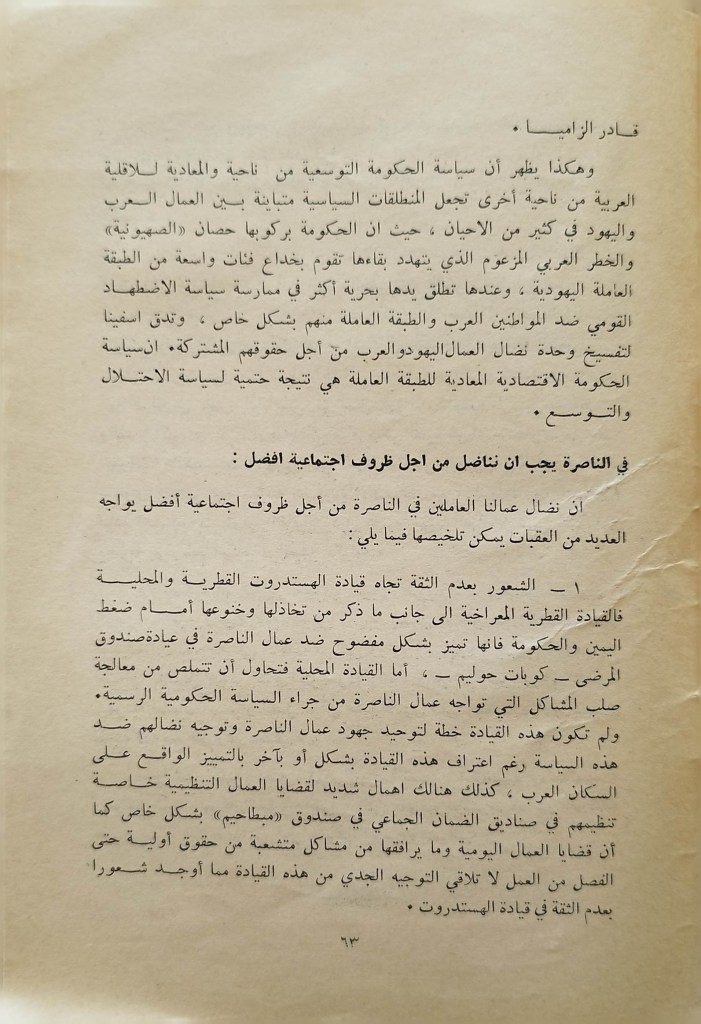 قادر الزاميا .
وهكذا يظهر أن سياسة الحكومة التوسعية من ناحية والمعادية للاقلية
العربية من ناحية أخرى تجعل المنطلقات السياسية متباينة بين العمال العرب
واليهود في كثير من الاحيان ، حيث ان الحكومة بركوبها حصان «الصهيونية»
والخطر العربي المزعوم الذي يتهدد بقاءها تقوم بخداع فئات واسعة من الطبقة
العاملة اليهودية ، وعندها تطلق يدها بحرية أكثر في ممارسة سياسة الاضطهاد
القومي ضد المواطنين العرب والطبقة العاملة منهم بشكل خاص ، وتدق اسفينا
لتفسيخ وحدة نضال العمال اليهود والعرب من أجل حقوقهم المشتركة. ان سياسة
الحكومة الاقتصادية المعادية للطبقة العاملة هي نتيجة حتمية لسياسة الاحتلال
والتوسع .
في الناصرة يجب ان نناضل من اجل ظروف اجتماعية افضل :
ان نضال عمالنا العاملين في الناصرة من أجل ظروف اجتماعية أفضل يواجه
العديد من العقبات يمكن تلخيصها فيما يلي :
١ ــ الشعور بعدم الثقة تجاه قيادة الهستدروت القطرية والمحلية
فالقيادة القطرية المعراخية الى جانب ما ذكر من تخاذلها وخنوعها أمام ضغط
اليمين والحكومة فانها تميز بشكل مفضوح ضد عمال الناصرة في عيادة صندوق
المرضى ــ كوبات حوليم ــ ، أما القيادة المحلية فتحاول أن تتملص من معالجة
صلب المشاكل التي تواجه عمال الناصرة من جراء السياسة الحكومية الرسمية.
ولم تكون هذه القيادة خطة لتوحيد جهود عمال الناصرة وتوجيه نضالهم ضد
هذه السياسة رغم اعتراف هذه القيادة بشكل أو بآخر بالتمييز الواقع على
السكان العرب ، كذلك هنالك اهمال شديد لقضايا العمال التنظيمية خاصة
تنظيمهم في صناديق الضمان الجماعي في صندوق «مبطاحيم» بشكل خاص كما
أن قضايا العمال اليومية وما يرافقها من مشاكل متشعبة من حقوق أولية حتى
الفصل من العمل لا تلاقي التوجيه الجدي من هذه القيادة مما أوجد شعورا
بعدم الثقة في قيادة الهستدروت .
٦٣